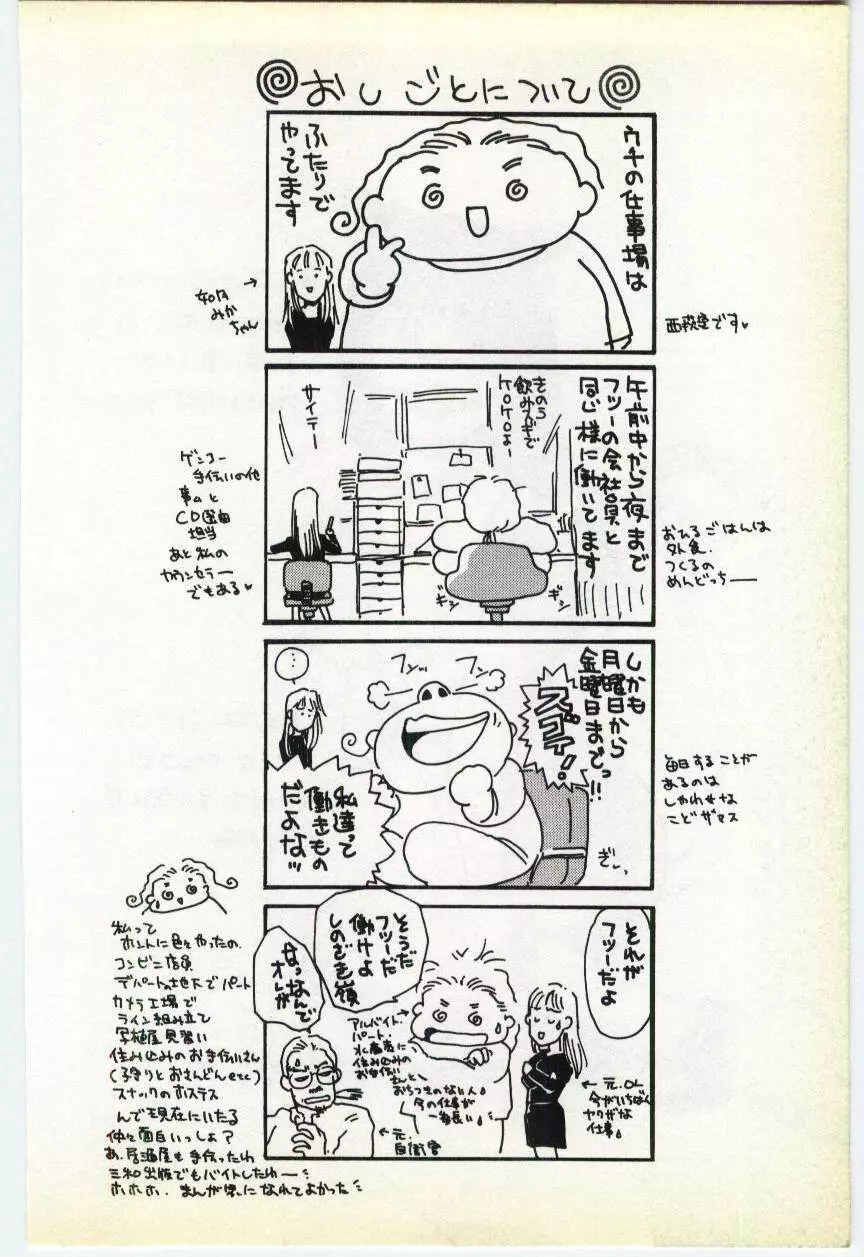 おしごとについて
ウチの仕事場は
ふたりで
やってます
みか
ちゃん
西荻窪です
午前中から夜まで
フツーの会社員と
同じ様に働いてます
きのう
飲みスギで
ケロケロよー
サイテー
ゲンコー
手伝いの他
事ムと
CD選曲
担当
あと私の
カウンセラー
でもある
おひるごはんは
外食。
つくるの
めんどっちー
ギシ
ギシ
しかも
月曜日から
金曜日までっ!!
スゴイ!
フンッ
フンッ
…
私達って
働きもの
だよなッ
ぎ…
毎日することが
あるのは
しあわせな
ことザマス
それが
フツーだよ
そうだ
フツーだ
働けよ
しのざき嶺
なっなんで
オレが
アルバイト・
パート・
水商売に、
住み込みの
お手伝い
さんと、
おちつきのない人
今の仕事が
一番長い
←元.OL
今がいちばん
ヤクザな
仕事
←元.
自衛官
私って
ホントに色々やったの.
コンビニ店員
デパートの地下でパート
カメラ工場で
ライン組み立て
写植屋見習い
住み込みのお手伝いさん
(子守りとおさんどんetc)
スナックのホステス
んで現在にいたる
仲々面白いっしょ?
あ.居酒屋も手伝ったわ
三和出版でもバイトしたわー
ホホホ.まんが家になれてよかった